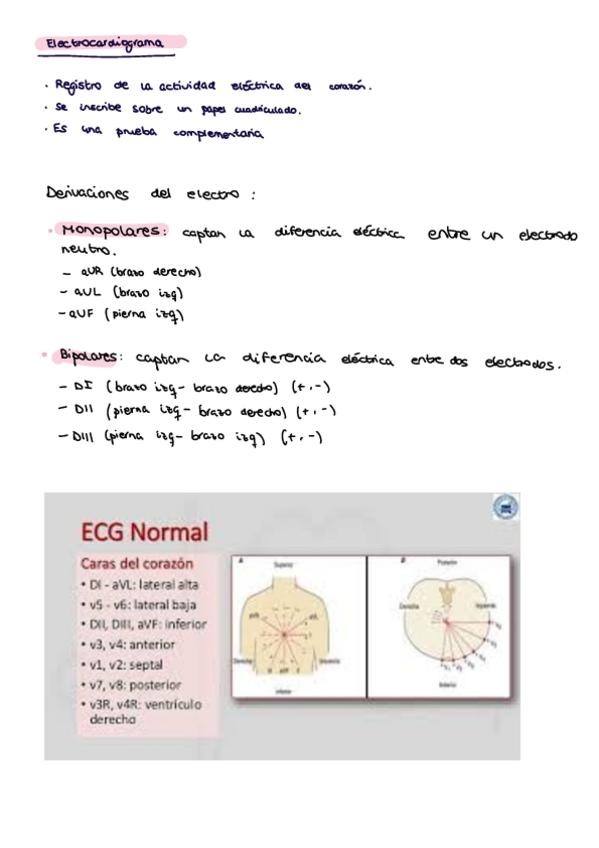 Electrocardiograma
· Registro de la actividad eléctrica del corazón.
· Se inscribe sobre un papel cuadriculado.
· Es una prueba complementaria
Derivaciones del electro :
· Monopolares: captan la diferencia eléctrica entre un electrodo
neutro.
- aVR (brazo derecho)
- aVL (brazo izq)
- aVF (pierna izq)
· Bipolares: captan la diferencia eléctrica entre dos electrodos.
- DI (brazo izq - brazo derecho) (+,-)
- DII (pierna izq - brazo derecho) (+,-)
- DIII (pierna izq - brazo izq) (+,-)
ECG Normal
Caras del corazón
• DI - aVL: lateral alta
• v5 - v6: lateral baja
• DII, DIII, aVF: inferior
• v3, v4: anterior
• v1, v2: septal
• v7, v8: posterior
• v3R, v4R: ventrículo
derecho
A
Superior
aVR
aVL
Derecha
Izquierda
Inferior
B
Posterior
Derecha
Izquierda
Anterior